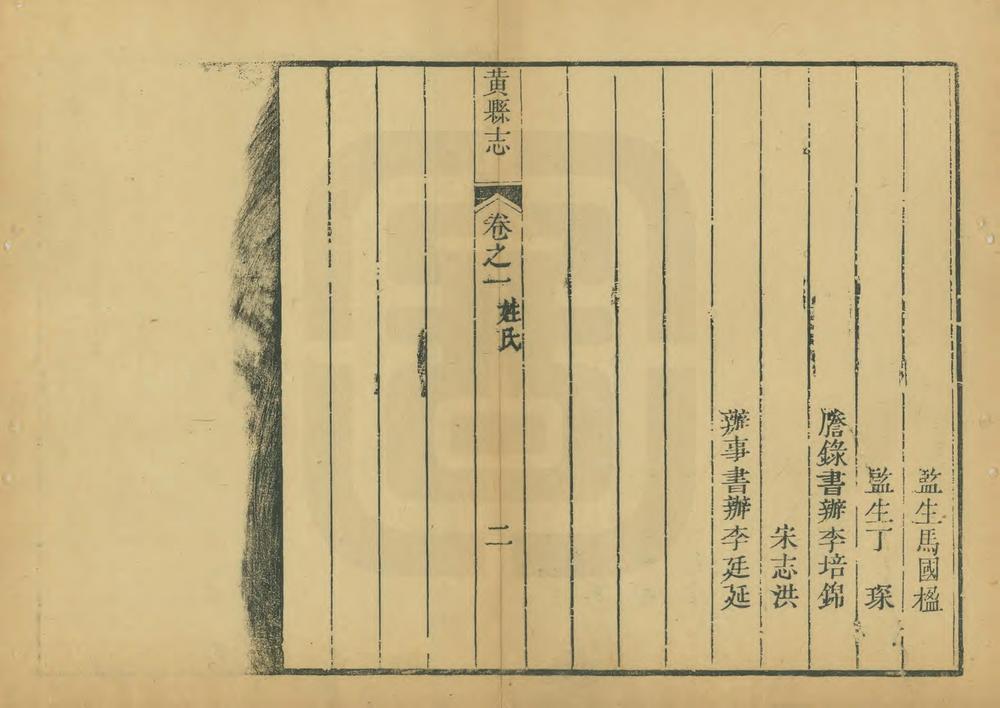 監生馬國楹
監生丁　琛
謄錄書辦李培錦
宋志洪
辦事書辦李廷延
黃縣志
卷之一
姓氏
二